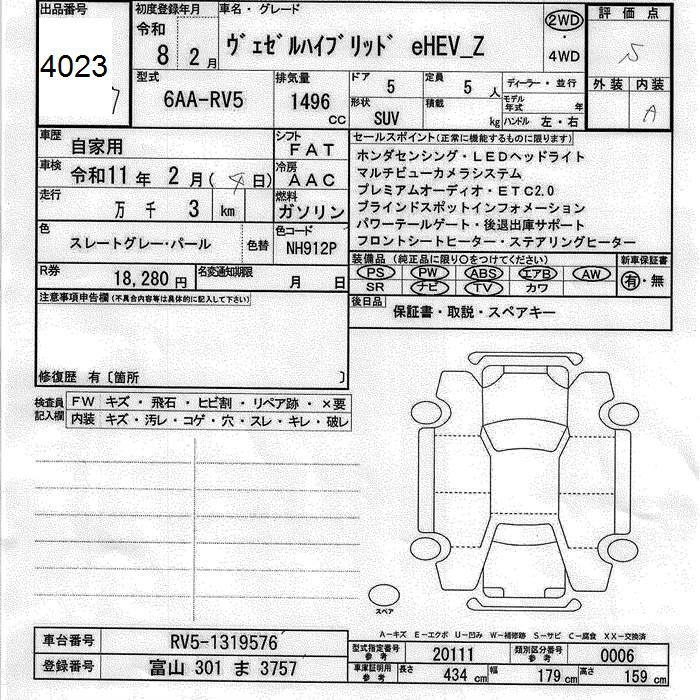 出品番号
4023
7
初度登録年月
令和
8 2月
車名・グレード
ヴェゼルハイブリッド eHEV_Z
2WD
・
4WD
評価点
S
外装 内装
A
型式
6AA-RV5
排気量
1496 cc
ドア 5
定員 5 人
形状 SUV
積載 kg
ディーラー・並行
モデル年式 年
ハンドル 左・右
車歴 自家用
シフト FAT
車検 令和11年 2月(4日)
冷房 AAC
走行 万 千 3 km
燃料 ガソリン
色 スレートグレー・パール
色替
色コード NH912P
R券 18,280円
名変通知期限 月 日
セールスポイント(正常に機能するものに限ります)
ホンダセンシング・LEDヘッドライト
マルチビューカメラシステム
プレミアムオーディオ・ETC2.0
ブラインドスポットインフォメーション
パワーテールゲート・後退出庫サポート
フロントシートヒーター・ステアリングヒーター
装備品(純正品に限り○をつけてください)
新車保証書
PS PW ABS エアB AW
SR ナビ TV カワ
有・無
後日品 保証書・取説・スペアキー
注意事項申告欄(不具合内容等は具体的に記入して下さい)
修復歴 有〔箇所 〕
検査員記入欄
FW キズ・飛石・ヒビ割・リペア跡・×要
内装 キズ・汚レ・コゲ・穴・スレ・キレ・破レ
スペア
A−キズ E−エクボ U−凹み W−補修跡 S−サビ C−腐食 XX−交換済
車台番号 RV5-1319576
登録番号 富山 301 ま 3757
型式指定番号参考 20111
類別区分番号参考 0006
車庫証明用参考 長さ 434 cm 幅 179 cm 高さ 159 cm